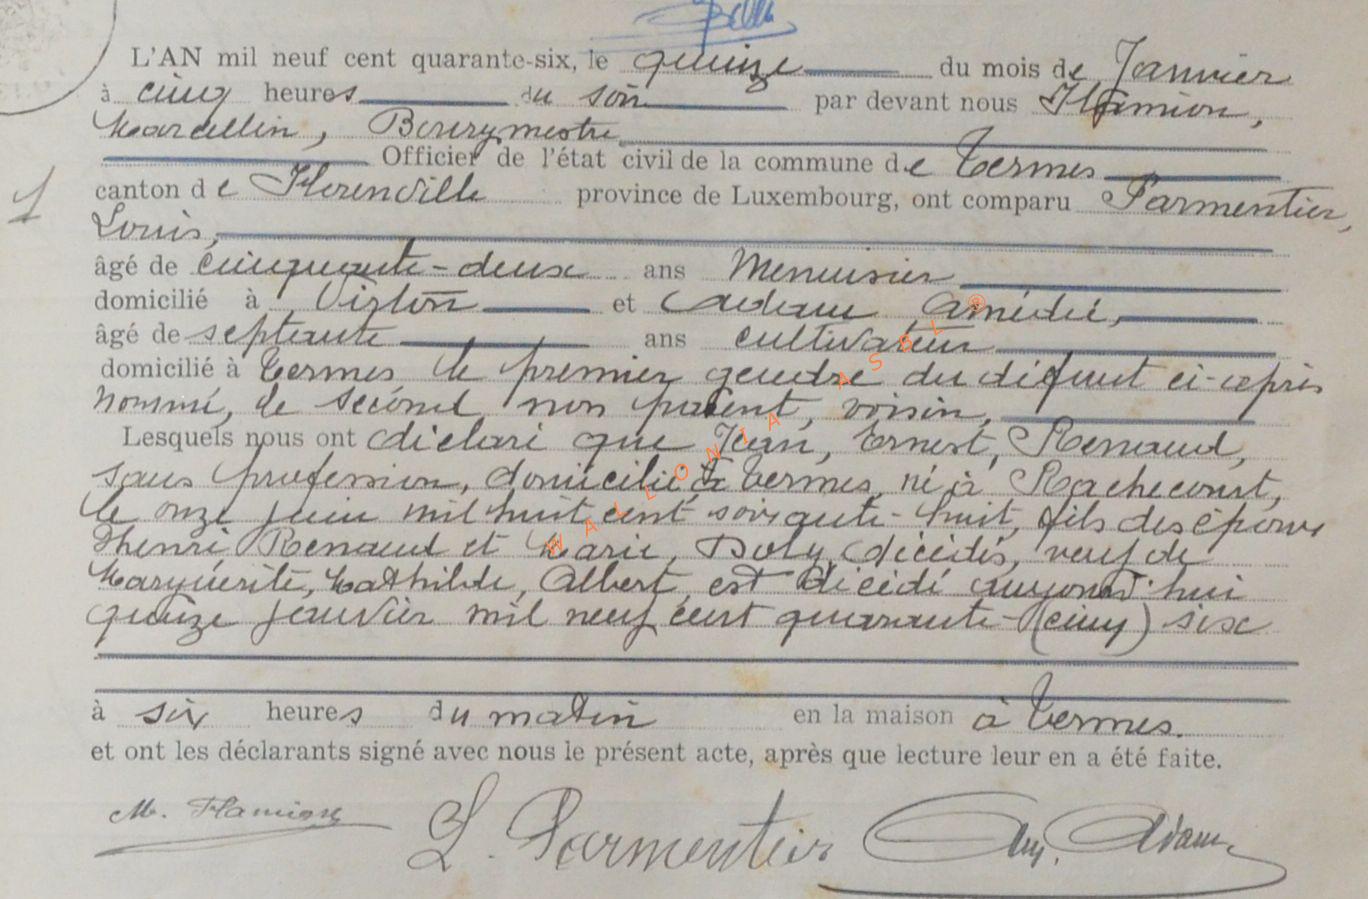 L'AN mil neuf cent quarante-six, le quinze du mois de Janvier
à cinq heures du soir par devant nous Flamion,
Marcellin, Bourgmestre
Officier de l'état civil de la commune de Termes
1
canton de Florenville province de Luxembourg, ont comparu Parmentier,
Louis,
âgé de cinquante-deux ans Menuisier
domicilié à Virton et Adam Amédée,
âgé de septante ans cultivateur
domicilié à Termes le premier gendre du défunt ci-après
nommé, le second, non parent, voisin,
Lesquels nous ont déclaré que Jean, Ernest, Renaud,
sans profession, domicilié à Termes, né à Rachecourt,
le onze juin mil huit cent soixante-huit, fils des époux
Henri Renaud et Marie, Doly, décédés, veuf de
Marguérite, Mathilde, Albert, est décédé aujourd'hui
quinze janvier mil neuf cent quarante-(cinq) six
à six heures du matin en la maison à Termes.
et ont les déclarants signé avec nous le présent acte, après que lecture leur en a été faite.
M. Flamion L. Parmentier Am. Adam
WALLONIA ASBL ®